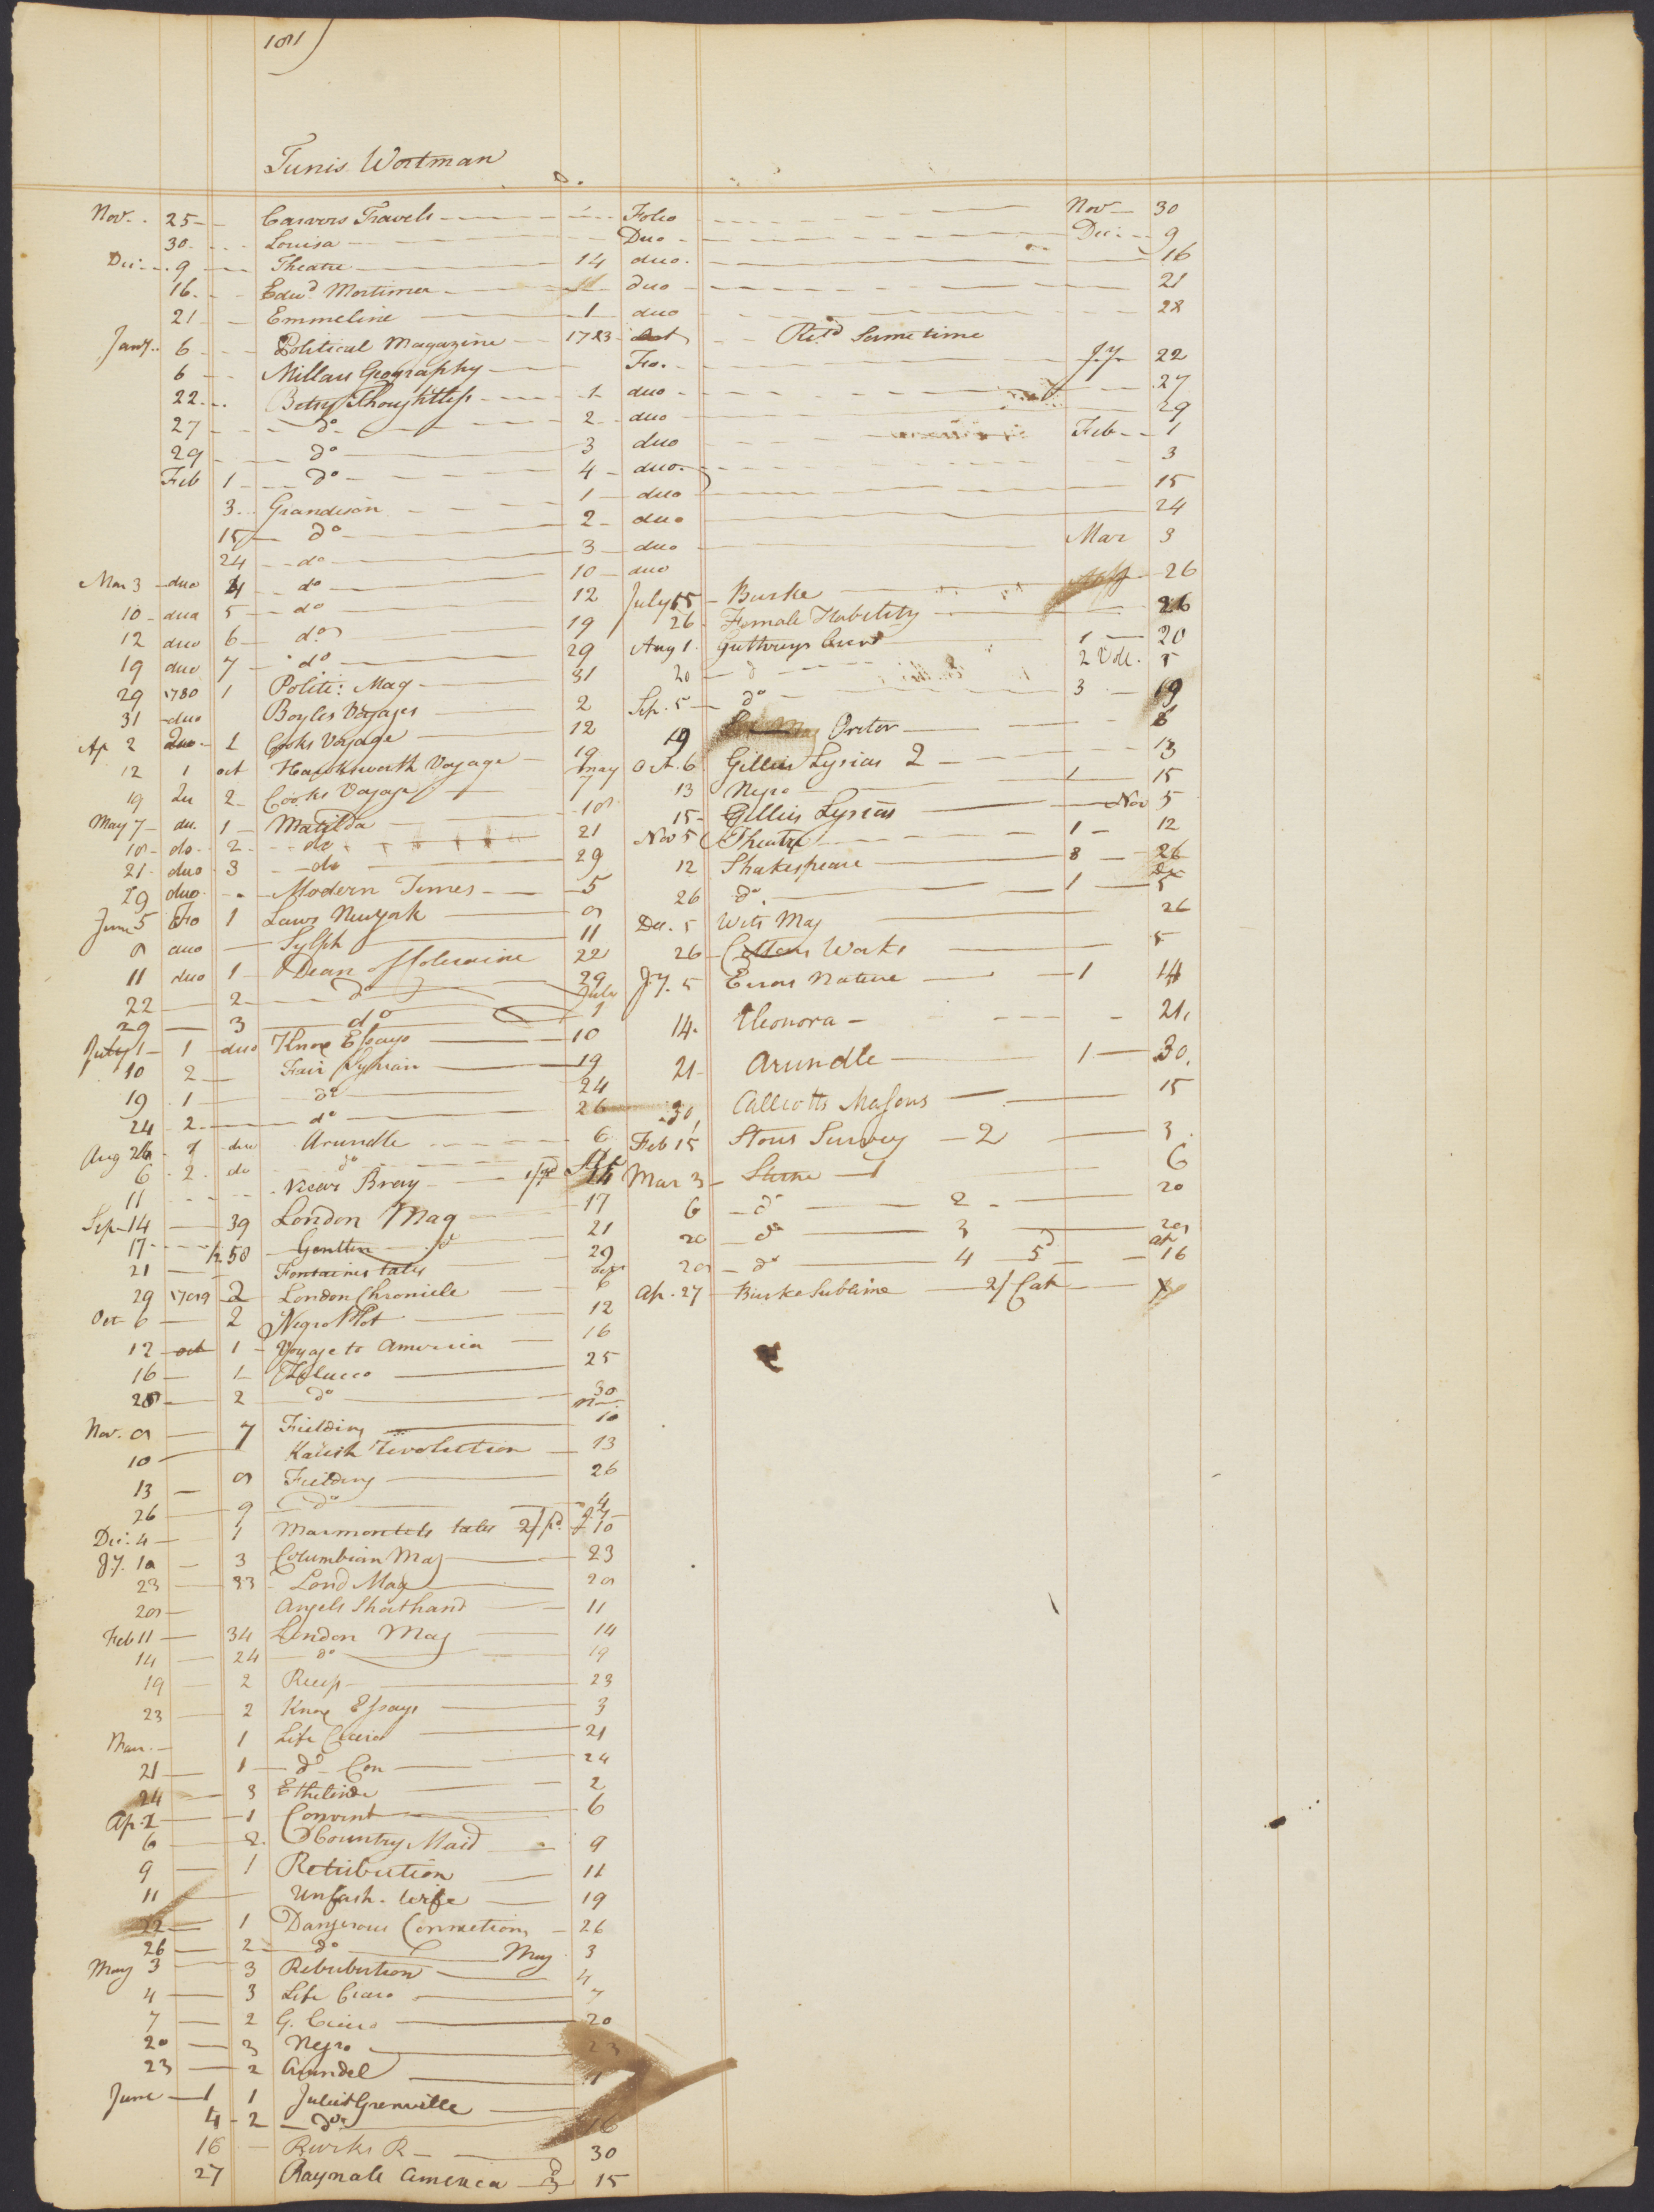 Tunis Wortman
Nov. 25 Carvers Travels Folio Nov 30
30 Louisa Duo Dec. 9
Dec. 9 Theatre 14 duo. 16
16. Edwd Mortimer duo 21
21 Emmeline 1 duo 28
Jany. 6 Political Magazine 1783 Oct Retd Sometime
6 Millars Geography Fo. Jy 22
22 Betsy Thoughtless 1 duo 27
27 do 2 duo 29
29 do 3 duo Feb 1
Feb 1 do 4 duo. 3
3 Grandison 1 duo 15
15 do 2 duo 24
24 do 3 duo Mar 3
Mar 3 duo 4 do 10 duo
10 duo 5 do 12
12 duo 6 do 19
19 duo 7 do 29
29 1780 1 Politi: Mag 31
31 duo Boyles Voyages 2
Ap 2 duo 1 Cooks Voyage 12
12 1 oct Hawksworth Voyage 19
19 2 Cooks Voyage may 7
May 7 du. 1 Matilda 18
18 do 2 do 21
21 duo 3 do 29
29 duo Modern Times 5
June 5 Fo 1 Laws Newyork 8
8 duo Sylph 11
11 duo 1 Dean of Coleraine 22
22 2 do 29
29 3 do July 1
July 1 1 duo Knox Essays 10
10 2 Fair Syrian 19
19 1 do 24
24 2 do 26
Aug 26 1 duo Arundle 6
6 2 do do
11 Vicar Bray 1/ pd
Sep 14 39 London Mag 17
17 58 Gentten do 21
21 Fontaines tales 29
29 1789 2 London Chronicle 6
Oct 6 2 Negro Plot 12
12 oct 1 Voyage to America 16
16 1 Zeluco 25
25 2 do 30
Nov. 8 7 Fielding 10
10 Kaiish Revolution 13
13 8 Fielding 26
26 9 do 4
Dec. 4 1 Marmontels tales 2/ pd. Jy 10
Jy. 10 3 Columbian Mag 23
23 33 Lond Mag 28
28 Angels Shorthand 11
Feb 11 34 London Mag 14
14 24 do 19
19 2 Recess 23
23 2 Knox Essays 3
Mar. 1 Life Cicero 21
21 1 do Con 24
24 3 Ethelinde 2
Ap. 2 1 Convent 6
6 2. Country Maid 9
9 1 Retribution 11
11 Unfash. Wife 19
22 1 Dangerous Connections 26
26 2 do May 3
May 3 3 Retribution 4
4 3 Life Cicero 7
7 2 G. Cicero 20
20 3 Negro 23
23 2 Arundel 1
June 1 1 Juliet Grenville
4 2 do 16
16 Burks R 30
27 Raynals America 3 15
July 15 Burke 26
26 Female Stability 26
Aug 1. Guthreys 1 20
20 do 2 Vol. 5
Sep. 5 do 3 19
19 Orator 6
Oct. 6 Gillies Lysias 2 13
13 Negro 1 15
15 Gillies Lysias Nov 5
Nov 5 Theatre 1 12
12 Shakespeare 8 26
26 do. 1 5
Dec. 5 Wits Mag 26
26 Cottons Works 5
Jy. 5 Errors Nature 1 14
14. Eleonora 21
21 Arundle 1 30.
30 Callcotts Masons 15
Feb 15 Stous Survey 2 3
Mar 3 Sterne 1 6
6 do 2 20
20 do 3 28
28 do 4 5 ap 16
Ap. 27 Burke Sublime 2/ Cat